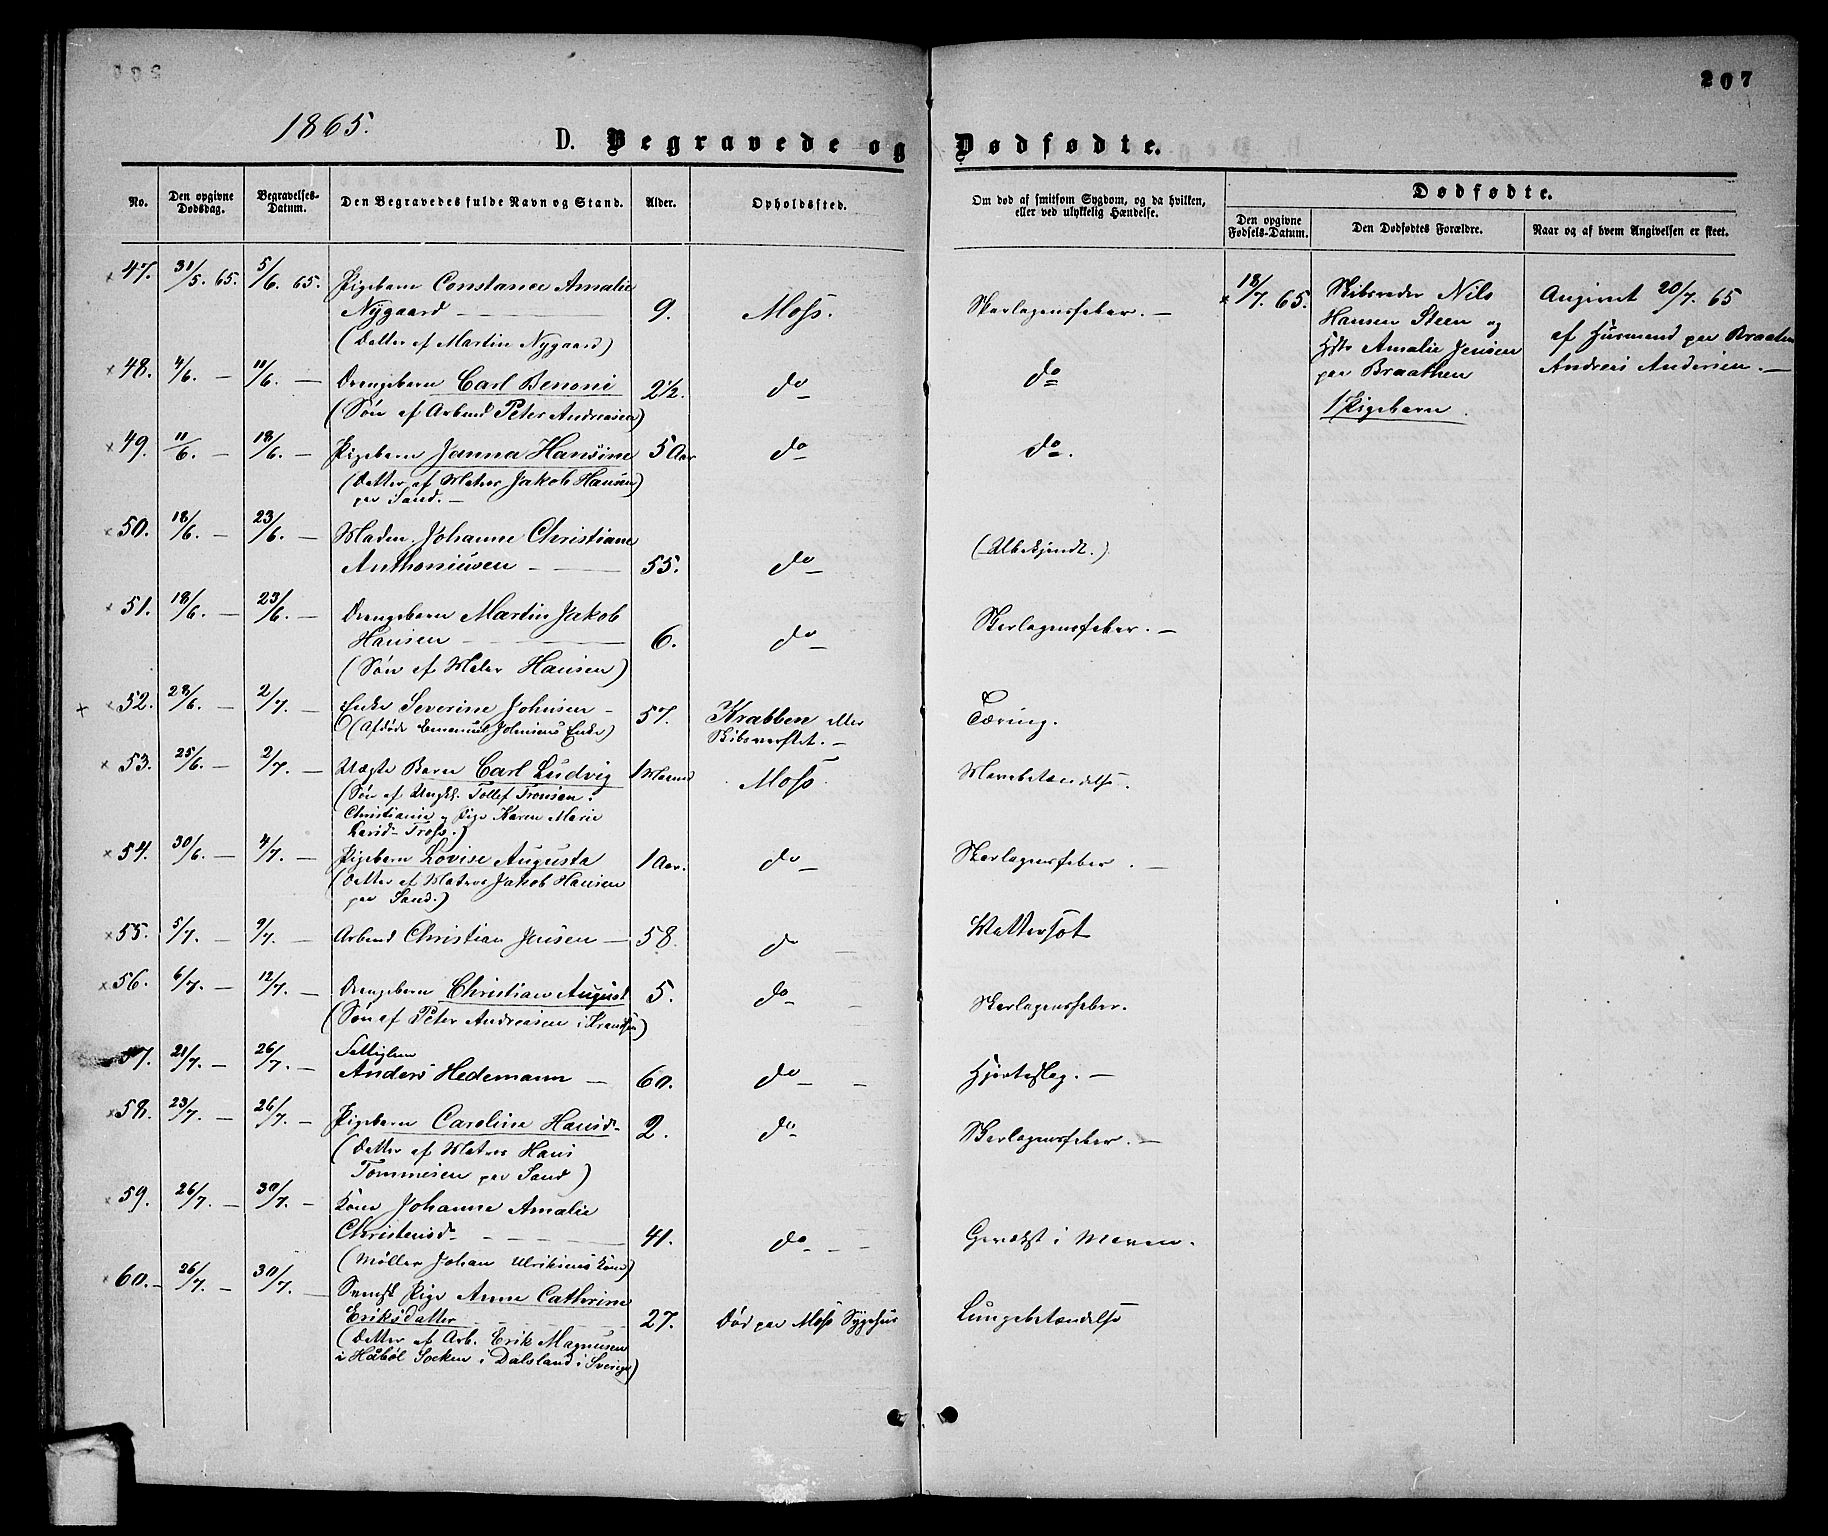 207
1865.
D. Begravede og Dødfødte.
No.
Den opgivne Dødsdag.
Begravelses-Datum.
Den Begravedes fulde Navn og Stand.
Alder.
Opholdssted.
Om død af smitsom Sygdom, og da hvilken, eller ved ulykkelig Hændelse.
Dødfødte.
Den opgivne Fødsels-Datum.
Den Dødfødtes Forældre.
Naar og af hvem Angivelsen er skeet.
× 47. 31/5. 65. 5/6. 65. Pigebarn Constance Amalie
Nygaard — 9. Moss. Skarlagensfeber. —
(Datter af Martin Nygaard)
× 48. 4/6. — 11/6. — Drengebarn Carl Benoni 2½. do — do
(Søn af Arbmd Peter Andreasen)
× 49. 11/6. — 18/6. — Pigebarn Janna Hansine 5 Aar do do.
(Datter af Matros Jakob Hansen)
paa Sand. —
× 50. 18/6. — 23/6. — Madm. Johanne Christiane
Anthoniusen — 55. do — (Ubekjendt.)
× 51. 18/6. — 23/6. — Drengebarn Martin Jakob
Hansen — 6. do — Skarlagensfeber. —
(Søn af Maler Hansen)
+ × 52. 28/6. — 2/7. — Enke Severine Johnsen — 57. Krabben eller Tæring.
(Afdøde Emanuel Johnsens Enke) Skibsverftet. —
× 53. 25/6. — 2/7. — Uægte Barn Carl Ludvig 1 Maaned Moss. Mavebetændelse.
(Søn af Ungk. Tollef Tronsen i
Christiania og Pige Karen Marie
Larsd- Moss.)
× 54. 30/6. — 4/7. — Pigebarn Lovise Augusta 1 Aar. do — Skarlagensfeber. —
(Datter af Matros Jakob Hansen
paa Sand.)
× 55. 5/7. — 9/7. — Arbmd Christian Jensen — 58. do — Wattersot
× 56. 6/7. — 12/7. — Drengebarn Christian August 5. do — Skarlagensfeber.
(Søn af Peter Andreasen i)
57. 21/7. — 26/7. — Fattiglem
Anders Hedemann — 60. do — — Hjerteslag. —
× 58. 23/7. — 26/7. — Pigebarn Caroline Hansd- 2. do Skarlagensfeber. —
(Datter af Matros Hans
Tommesen paa Sand)
× 59. 26/7. — 30/7. — Kone Johanne Amalie
Christensd- — 41. do — — Gevæxst i Maven.
(Møller Johan Ulriksens Kone)
× 60. — 26/7. — 30/7. — Svensk Pige Anne Cathrine
Eriksdatter 27. Død paa Moss Sygehus Lungebetændelse
(Datter af Arb. Erik Magnusen
i Håbøl Socken i Dalsland i Sverige)
× 18/7. 65. Skibsreder Nils
Hansen Steen og
Hstr Amalie Jensen
paa Braathen
1 Pigebarn.
Angivet 20/7. 65
af Husmand paa Braaten
Andreas Andersen. —